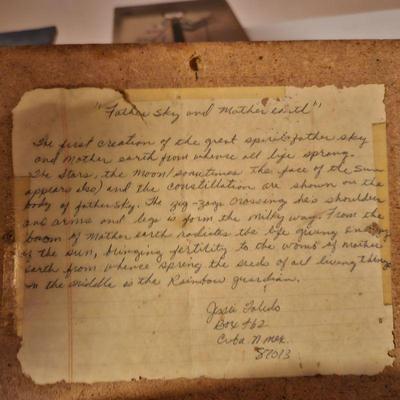 "Father Sky and Mother earth"
The first creation of the great spirit father sky
and Mother earth from whence all life sprang.
The Stars, the Moon (sometimes the face of the Sun
appears also) and the constillation are shown on the
body of father sky. The zig-zags crossing his shoulders
and arms and legs is form the milky way. From the
bosom of Mother earth radiates the life giving Energy
of the sun, bringing fertility to the womb of mother
Earth from whence spring the seeds of all living things
in the middle is the Rainbow guardian.
Jessie Toledo
Box 462
Cuba N.mex.
87013